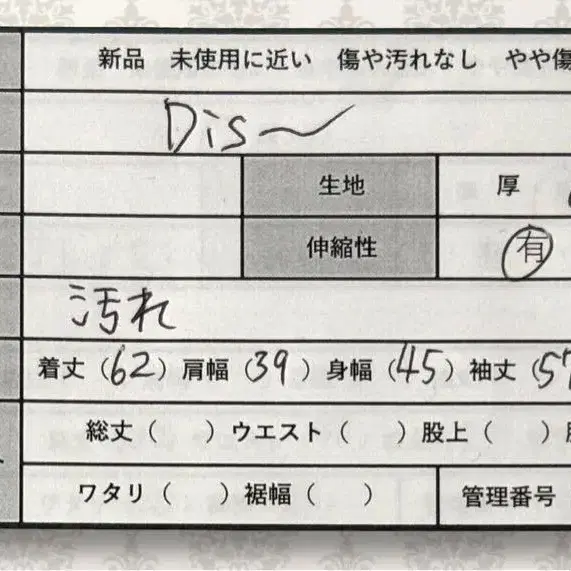 新品 未使用に近い 傷や汚れなし やや傷
Dis〜
生地 厚
伸縮性 有
汚れ
着丈（62）肩幅（39）身幅（45）袖丈（57
総丈（ ）ウエスト（ ）股上（ ）
ワタリ（ ）裾幅（ ） 管理番号